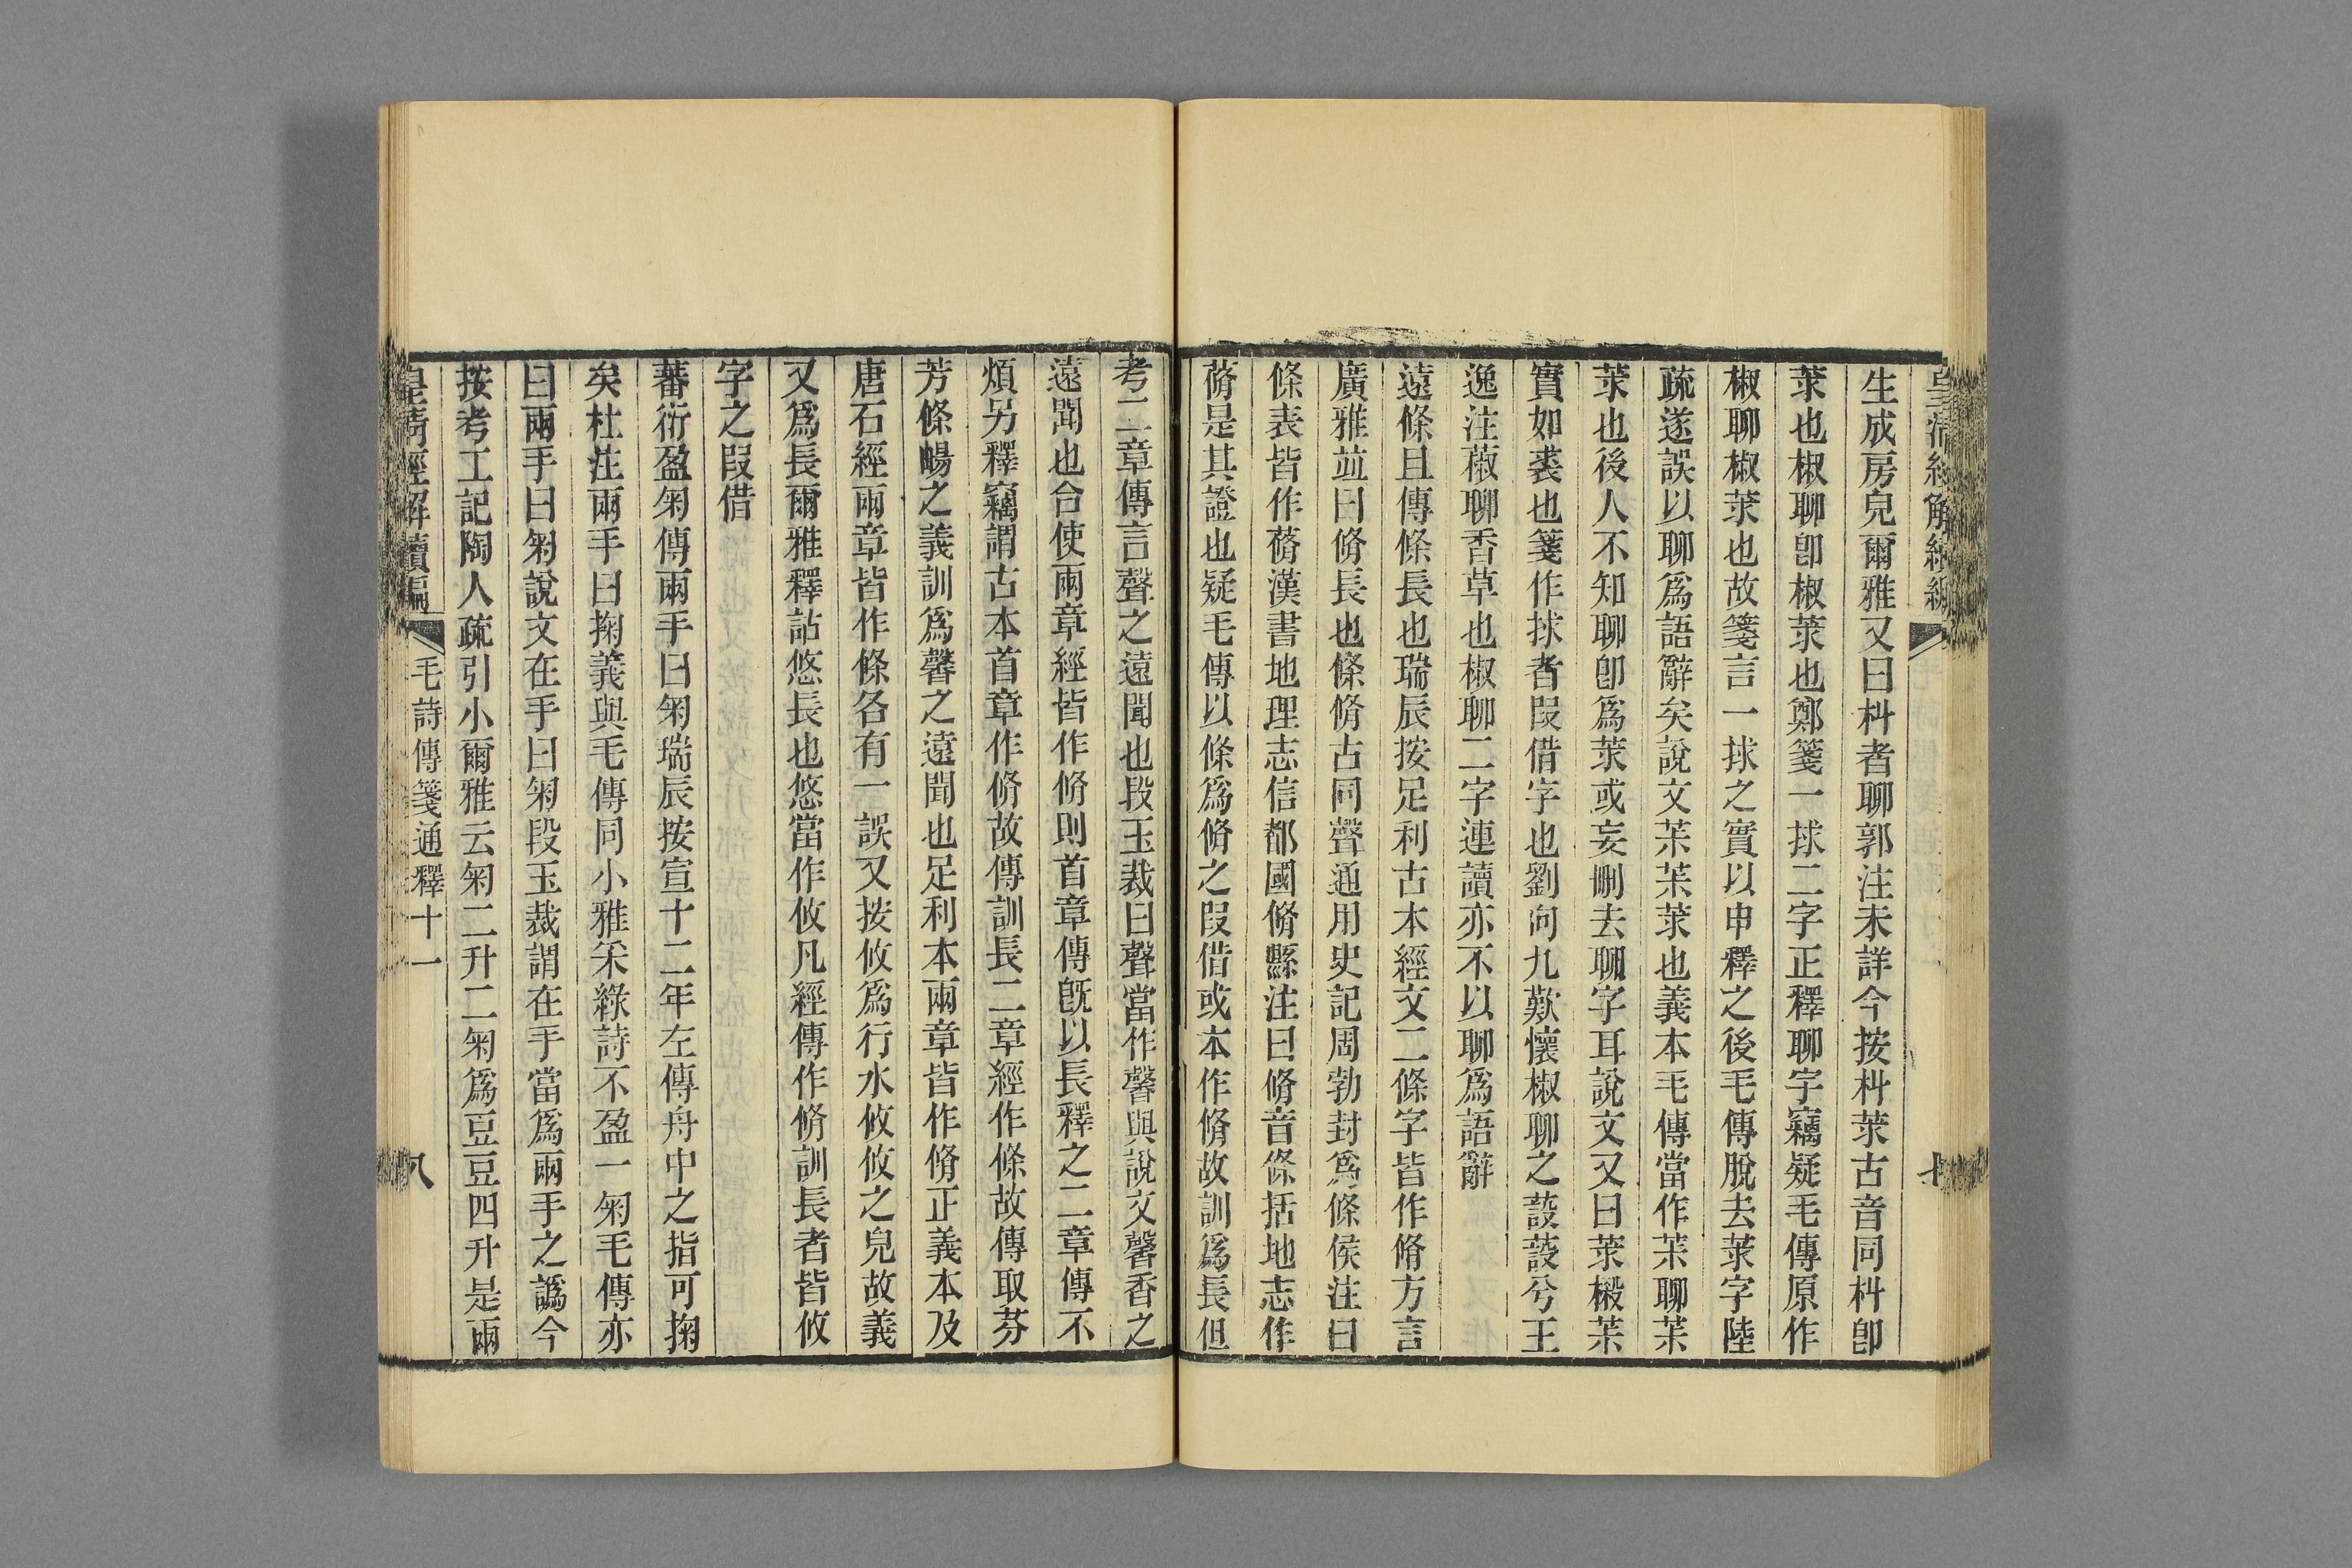 皇清經解續編
生成房皃爾雅又曰朻者聊郭注未詳今按朻莍古音同朻卽
莍也椒聊卽椒莍也鄭箋一捄二字正釋聊字竊疑毛傳原作
椒聊椒莍也故箋言一捄之實以申釋之後毛傳脫去莍字陸
疏遂誤以聊爲語辭矣說文茮茮莍也義本毛傳當作茮聊茮
莍也後人不知聊卽爲莍或妄刪去聊字耳說文又曰莍樧茮
實如裘也箋作捄者叚借字也劉向九歎懷椒聊之蔎蔎兮王
逸注椒聊香草也椒聊二字連讀亦不以聊爲語辭
遠條且傳條長也瑞辰按足利古本經文二條字皆作脩方言
廣雅竝曰脩長也條脩古同聲通用史記周勃封爲條侯注曰
條表皆作蓨漢書地理志信都國脩縣注曰脩音條括地志作
蓨是其證也疑毛傳以條爲脩之叚借或本作脩故訓爲長但
考二章傳言聲之遠聞也段玉裁曰聲當作馨與說文馨香之
遠聞也合使兩章經皆作脩則首章傳旣以長釋之二章傳不
煩另釋竊謂古本首章作脩故傳訓長二章經作條故傳取芬
芳條暢之義訓爲馨之遠聞也足利本兩章皆作脩正義本及
唐石經兩章皆作條各有一誤又按攸爲行水攸攸之皃故義
又爲長爾雅釋詁悠長也悠當作攸凡經傳作脩訓長者皆攸
字之叚借
蕃衍盈匊傳兩手曰匊瑞辰按宣十二年左傳舟中之指可掬
矣杜注兩手曰掬義與毛傳同小雅采綠詩不盈一匊毛傳亦
曰兩手曰匊說文在手曰匊段玉裁謂在手當爲兩手之譌今
按考工記陶人疏引小爾雅云匊二升二匊爲豆豆四升是兩
皇清經解續編 毛詩傳箋通釋十一 八